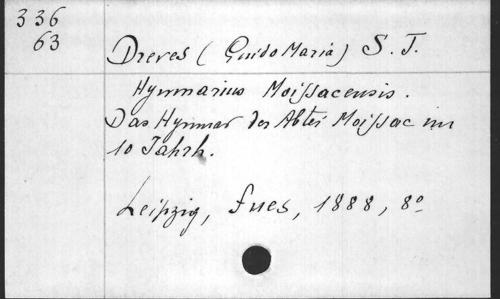 336
63
Dreves (Guido Maria) S. J.
Hymnarius Moissacensis.
Das Hymnar der Abtei Moissac im
10 Jahrh.
Leipzig, Fues, 1888, 8º